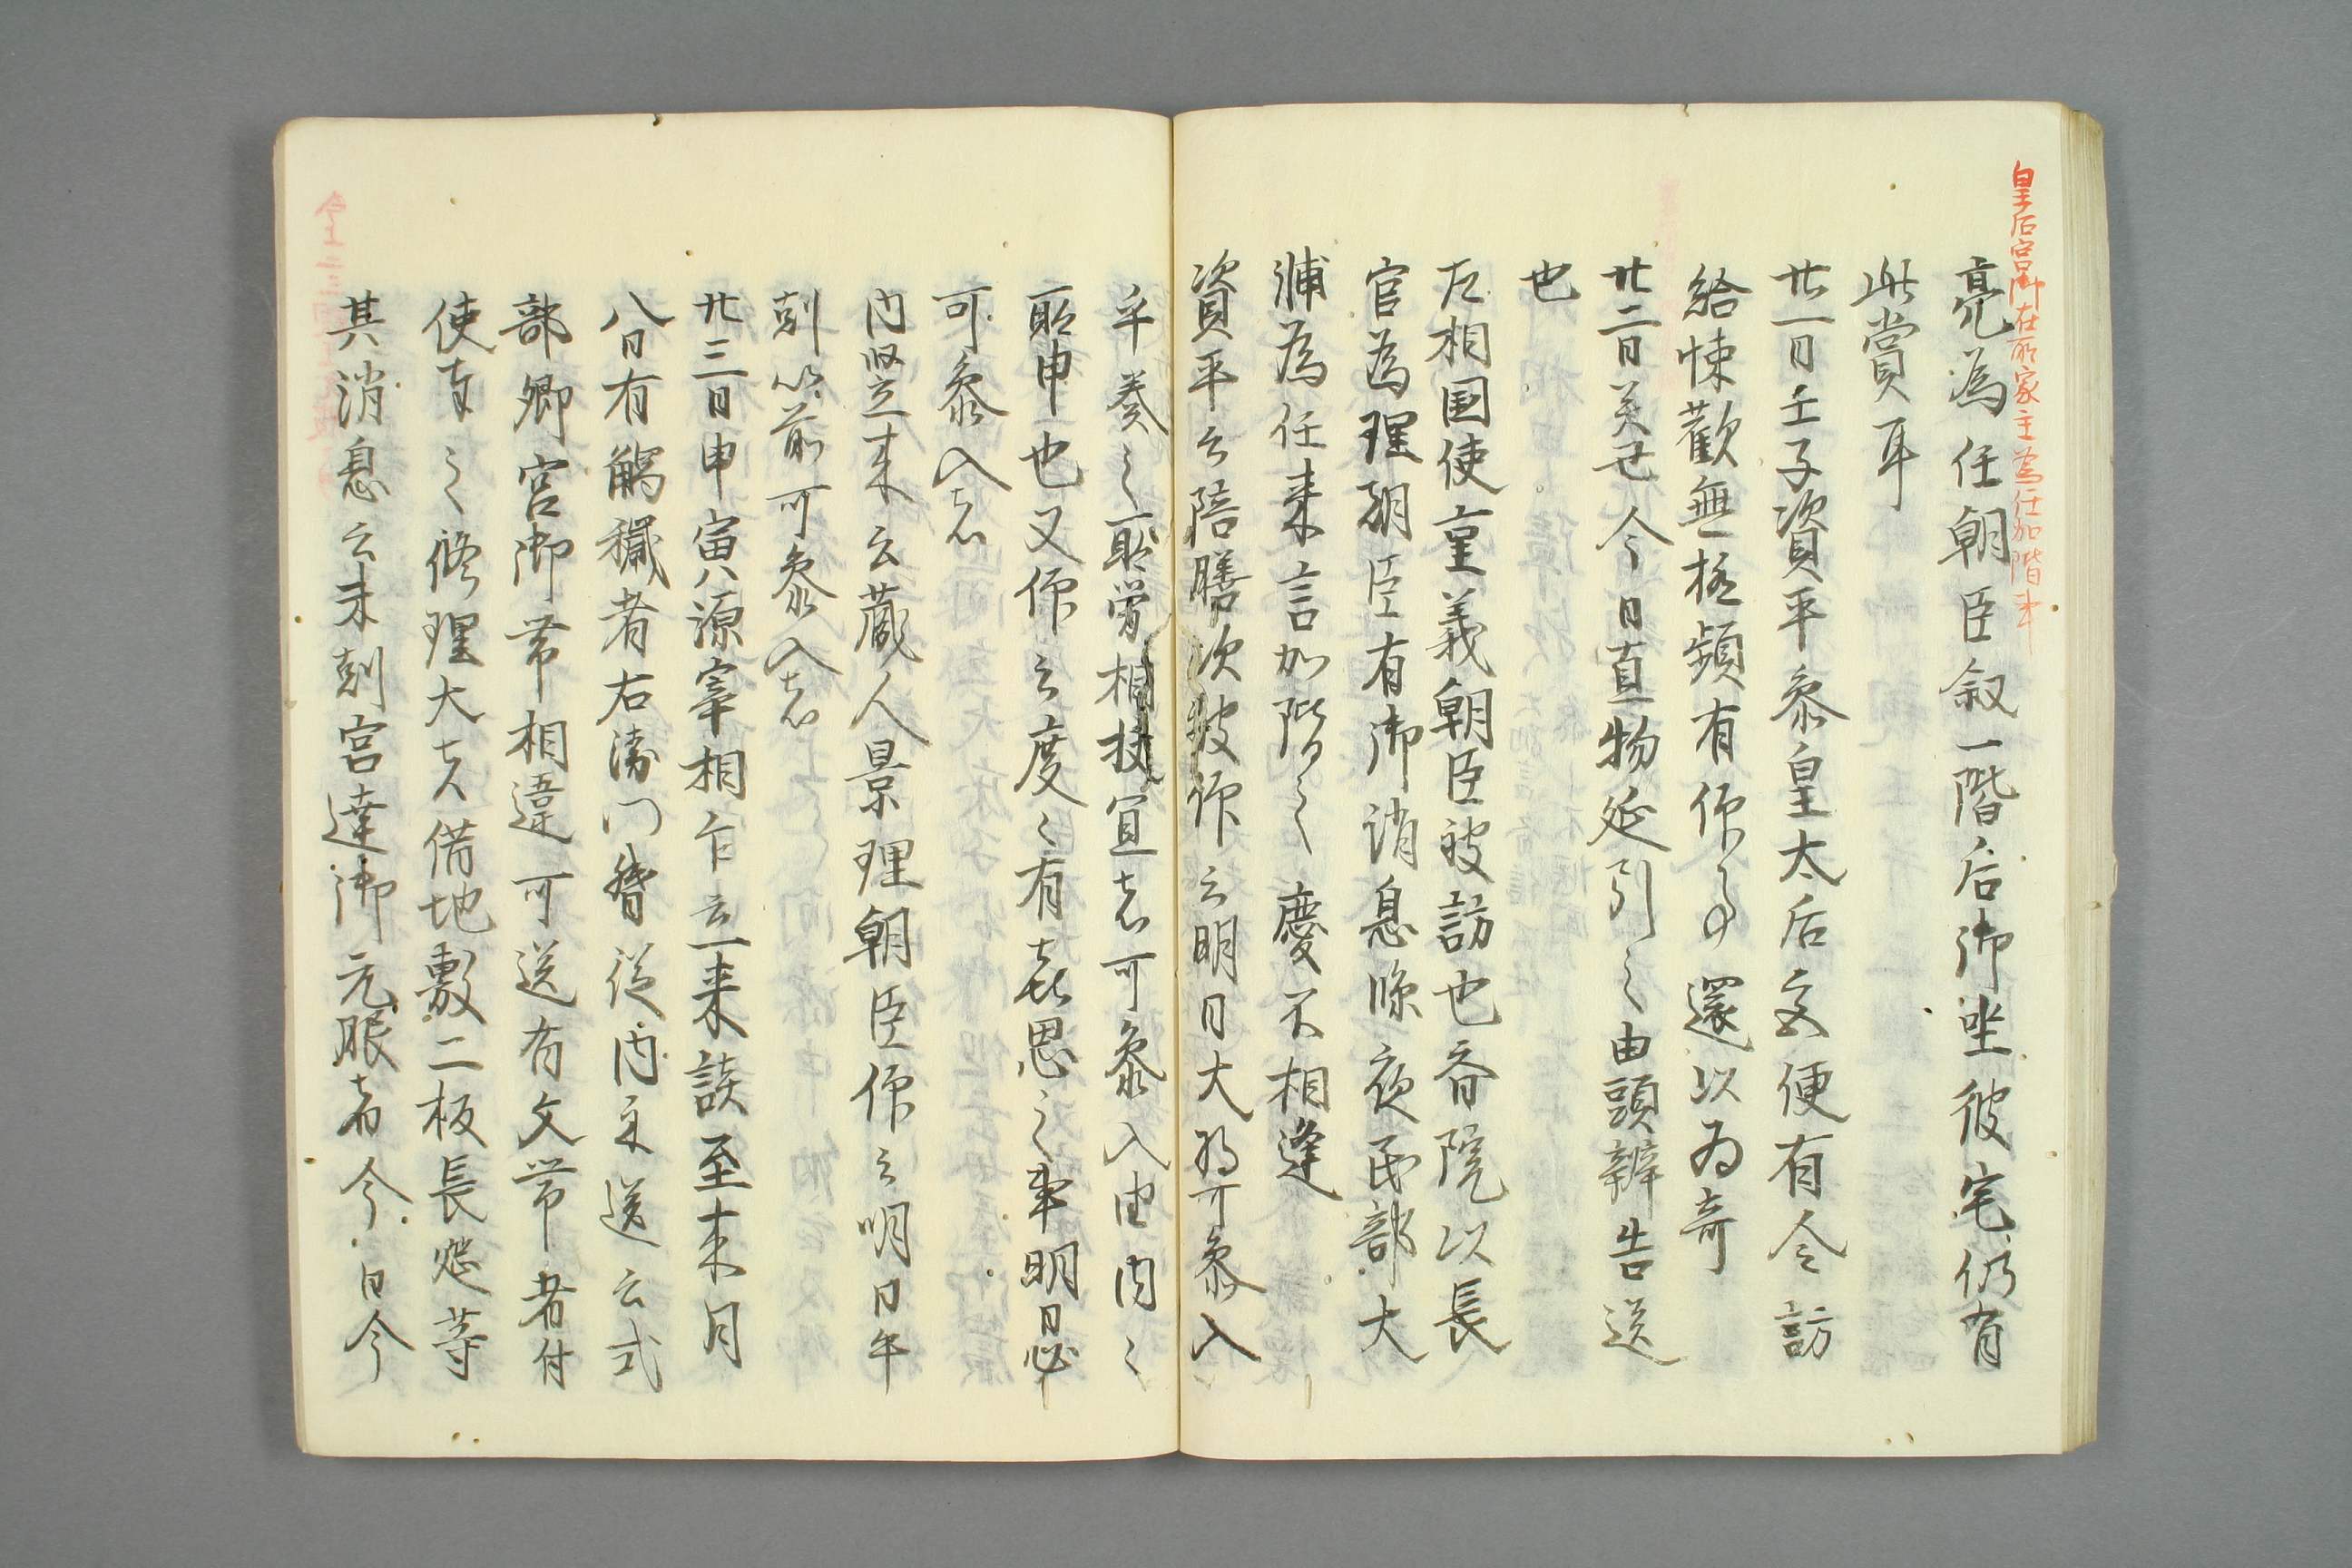 皇后宮御在所家主為任加階事
亮為任朝臣叙一階后御坐彼宅仍有
此賞耳
廿一日壬子資平参皇太后宮便有令訪
給悚歎無極頻有仰事還以為奇
廿二日癸丑今日直物延引之由頭辨告送
也
左相国使重義朝臣被訪也斎院以長
官為理朝臣有御消息臨夜民部大
輔為任来言加階之慶不相逢
資平云陪膳次被仰云明日大将可参入
乎奏之聊労相扶宜者可参入由内々
所申也又仰云度々有喜思之事明日必
可参入者
内竪立来云蔵人景理朝臣仰云明日午
刻以前可参入者
廿三日甲寅源宰相乍立来談至来月
八日有觸穢者右衛門督従内示送云式
部卿宮御帯相違可送有文帯者付
使奉之修理大夫借地敷二枚長筵等
其消息云未剋宮達御元服者今日今